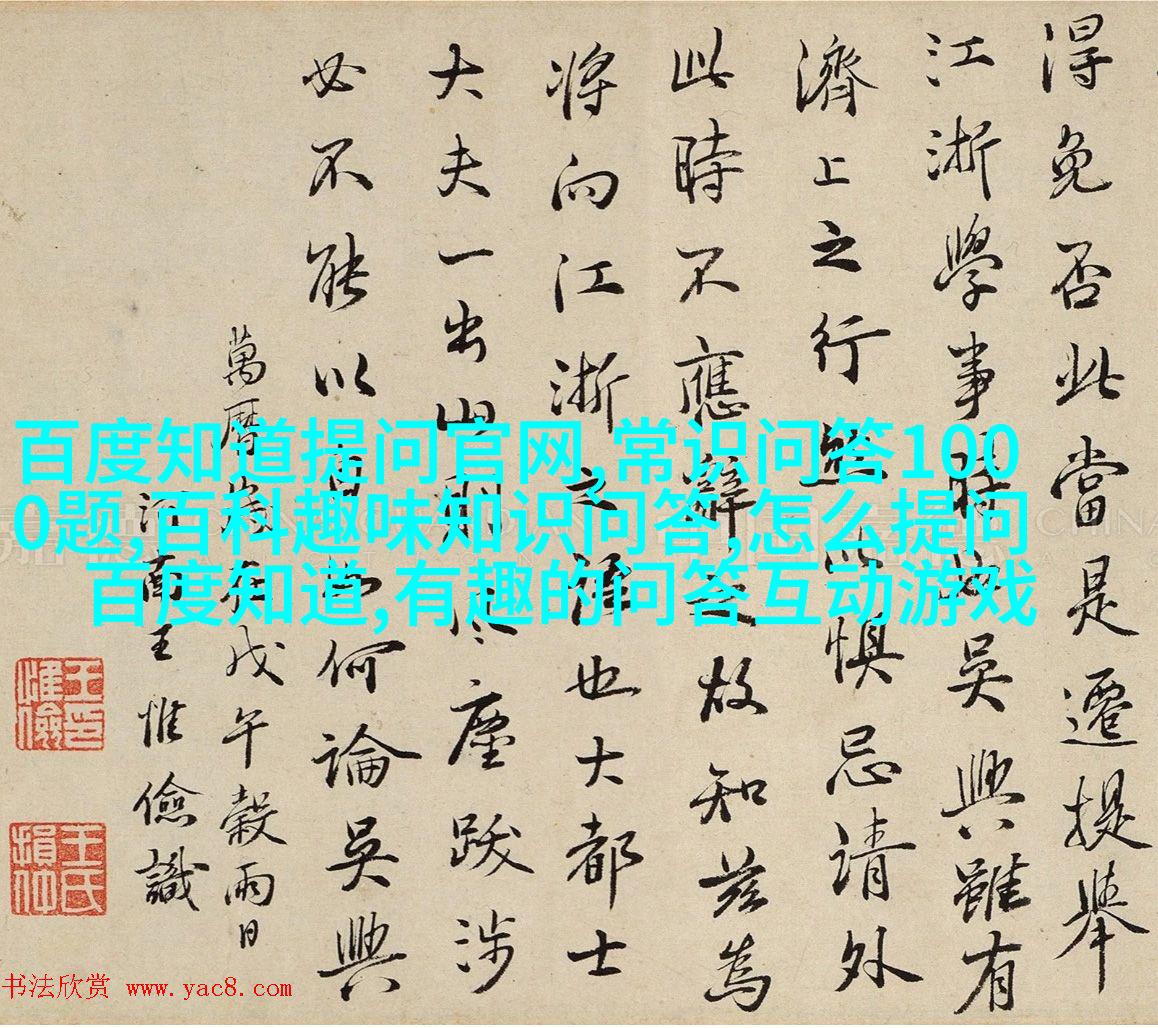 得免否此當是遷提舉
江浙學事時如吳興雖有
濟上之行
惧忌请外
此時不應辭
故知兹為
将向江浙之
也大都士
大夫一出山
塵跋涉
必不能以
何論吳興
萬曆
戊午穀雨日
河南王惟儉識
百度知道提问官网,常识问答100
0题,百科趣味知识问答,怎么提问
百度知道,有趣的问答互动游戏
CHINA
王印惟儉
王氏損仲
书法欣赏 www.yac8.com